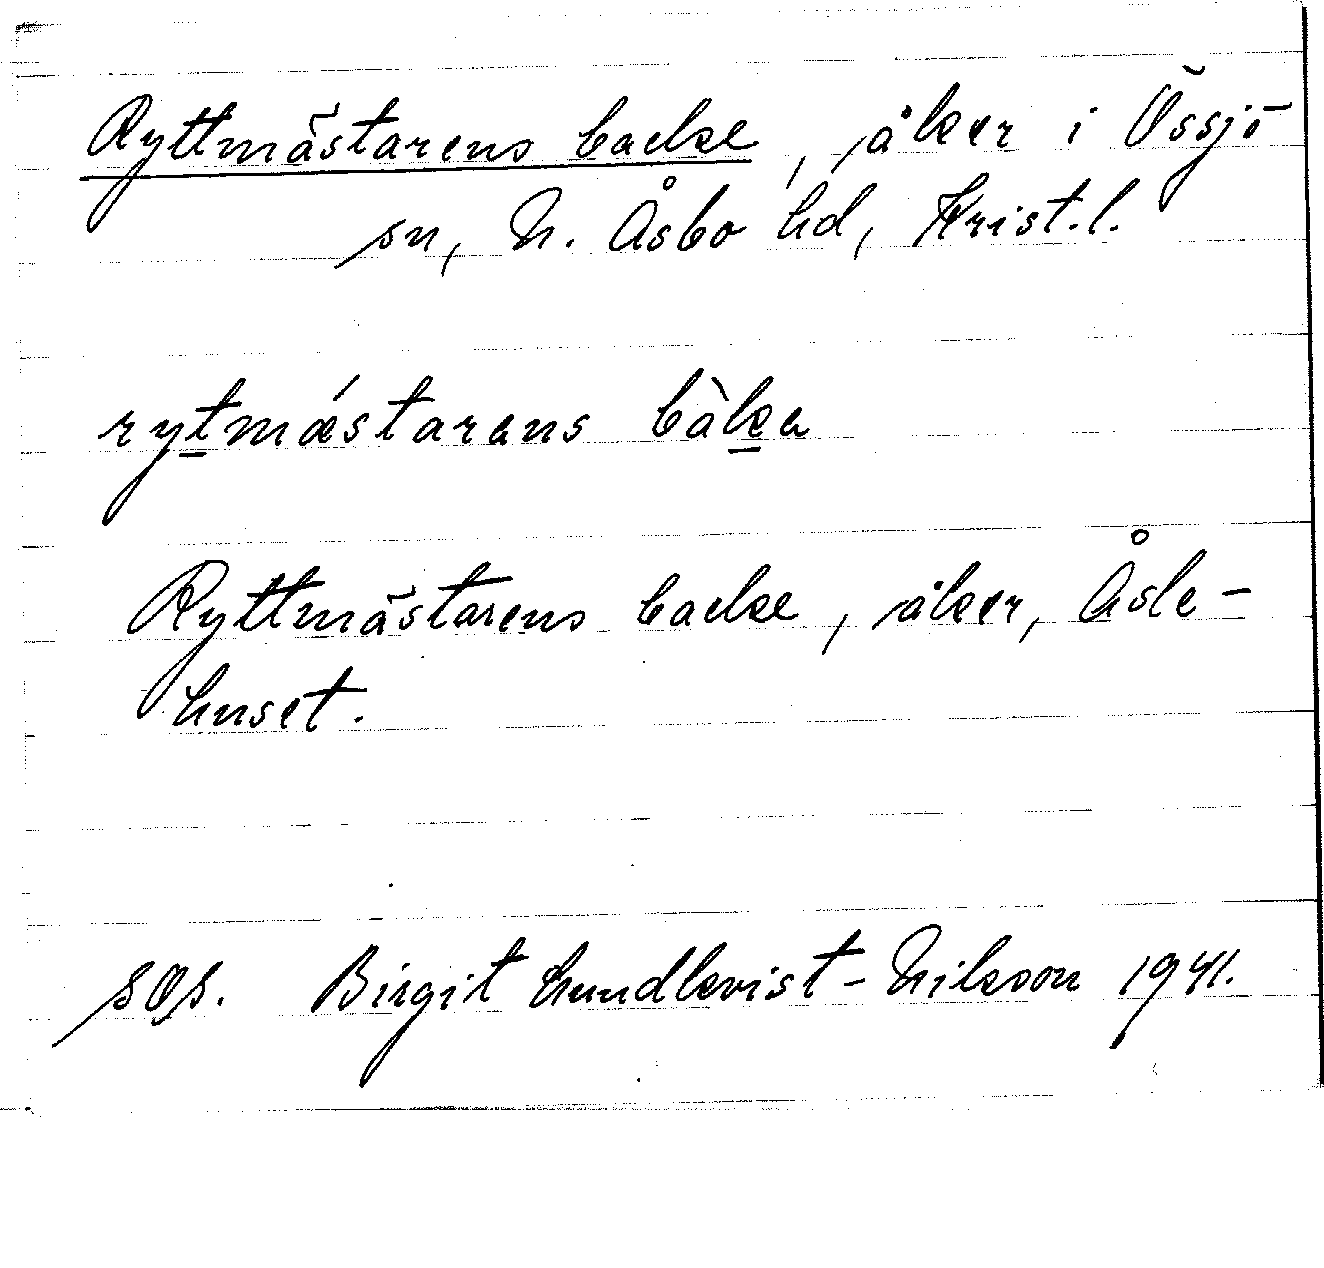 Ryttmästarens backe, åker i Össjö
sn, N. Åsbo hd, Krist.l.
rytmǽstarens bàka
Ryttmästarens backe, åker, Åsle-
huset.
sgs. Birgit Lundkvist-Nilsson 1941.